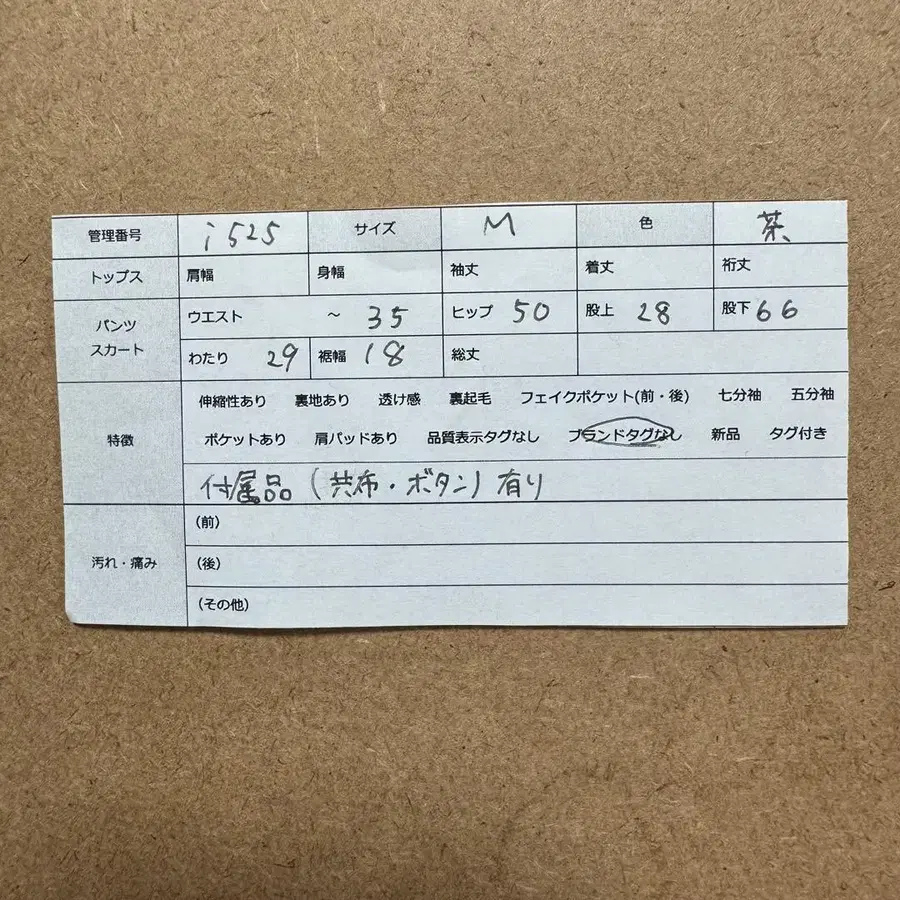 管理番号 i525 サイズ M 色 茶
トップス 肩幅 身幅 袖丈 着丈 裄丈
パンツ ウエスト ～ 35 ヒップ 50 股上 28 股下 66
スカート わたり 29 裾幅 18 総丈
伸縮性あり 裏地あり 透け感 裏起毛 フェイクポケット(前・後) 七分袖 五分袖
特徴 ポケットあり 肩パッドあり 品質表示タグなし ブランドタグなし 新品 タグ付き
付属品(共布・ボタン)有り
(前)
汚れ・痛み (後)
(その他)